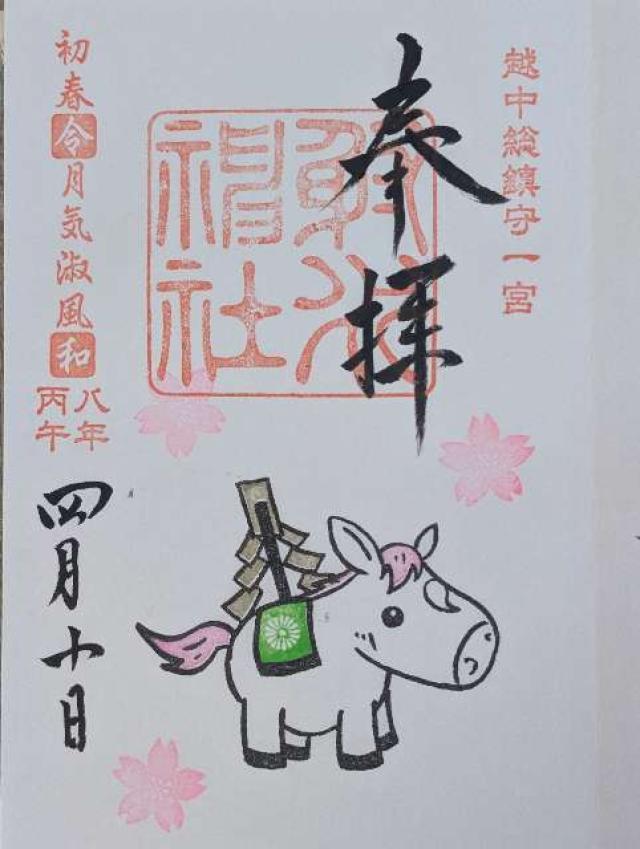 越中総鎮守一宮
奉拝
射水
神社
初春令月気淑風和
八年
丙午
四月十日